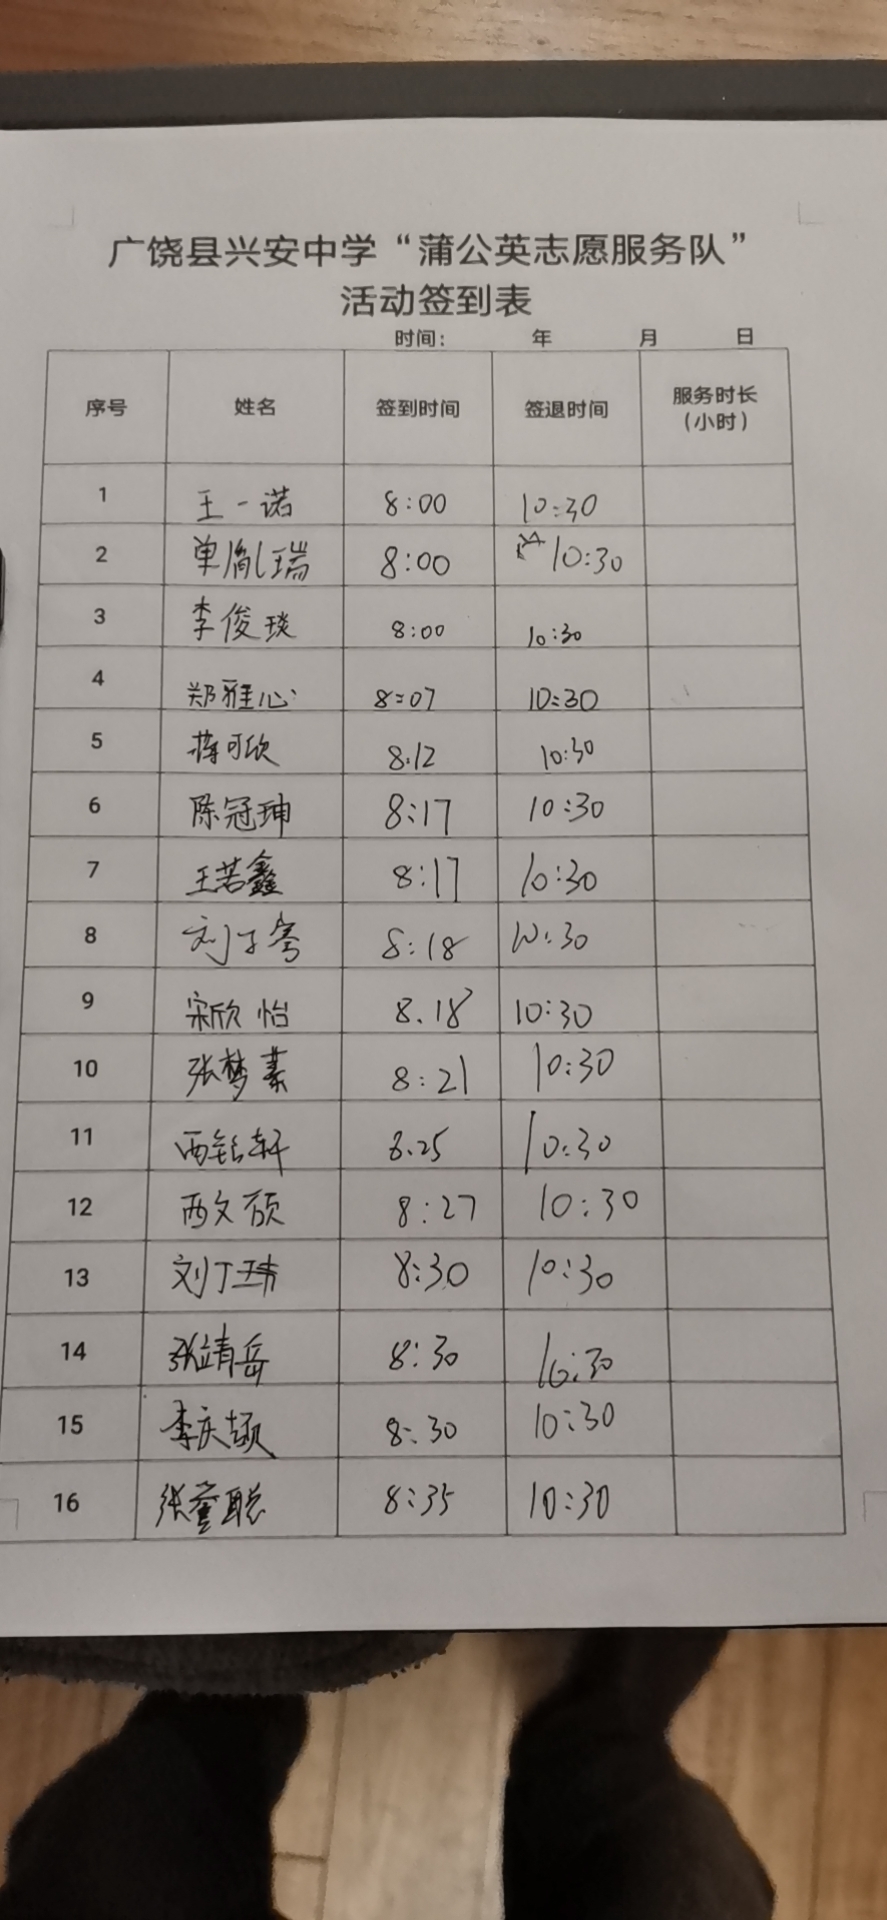 广饶县兴安中学“蒲公英志愿服务队”
活动签到表
时间： 年 月 日
序号 姓名 签到时间 签退时间 服务时长（小时）
1 王一诺 8:00 10:30
2 单胤瑞 8:00 10:30
3 李俊琰 8:00 10:30
4 郑雅心 8:07 10:30
5 蒋可欣 8.12 10:30
6 陈冠珅 8:17 10:30
7 王若鑫 8:17 10:30
8 刘子骞 8:18 10:30
9 宋欣怡 8.18 10:30
10 张梦蓁 8:21 10:30
11 8.25 10:30
12 西文颀 8:27 10:30
13 刘丁玮 8:30 10:30
14 张靖岳 8:30 10:30
15 李庆颉 8:30 10:30
16 张童聪 8:35 10:30